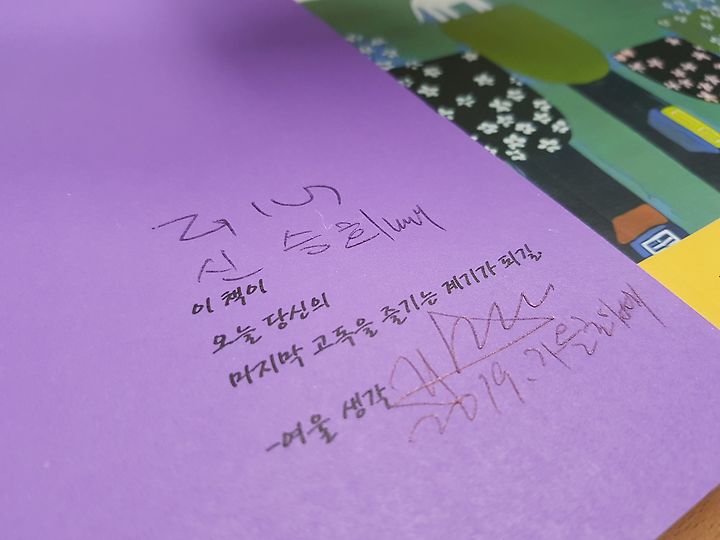 신 승희
이 책이
오늘 당신의
마지막 고독을 즐기는 계기가 되길,
-여울 생각
2019. 가을